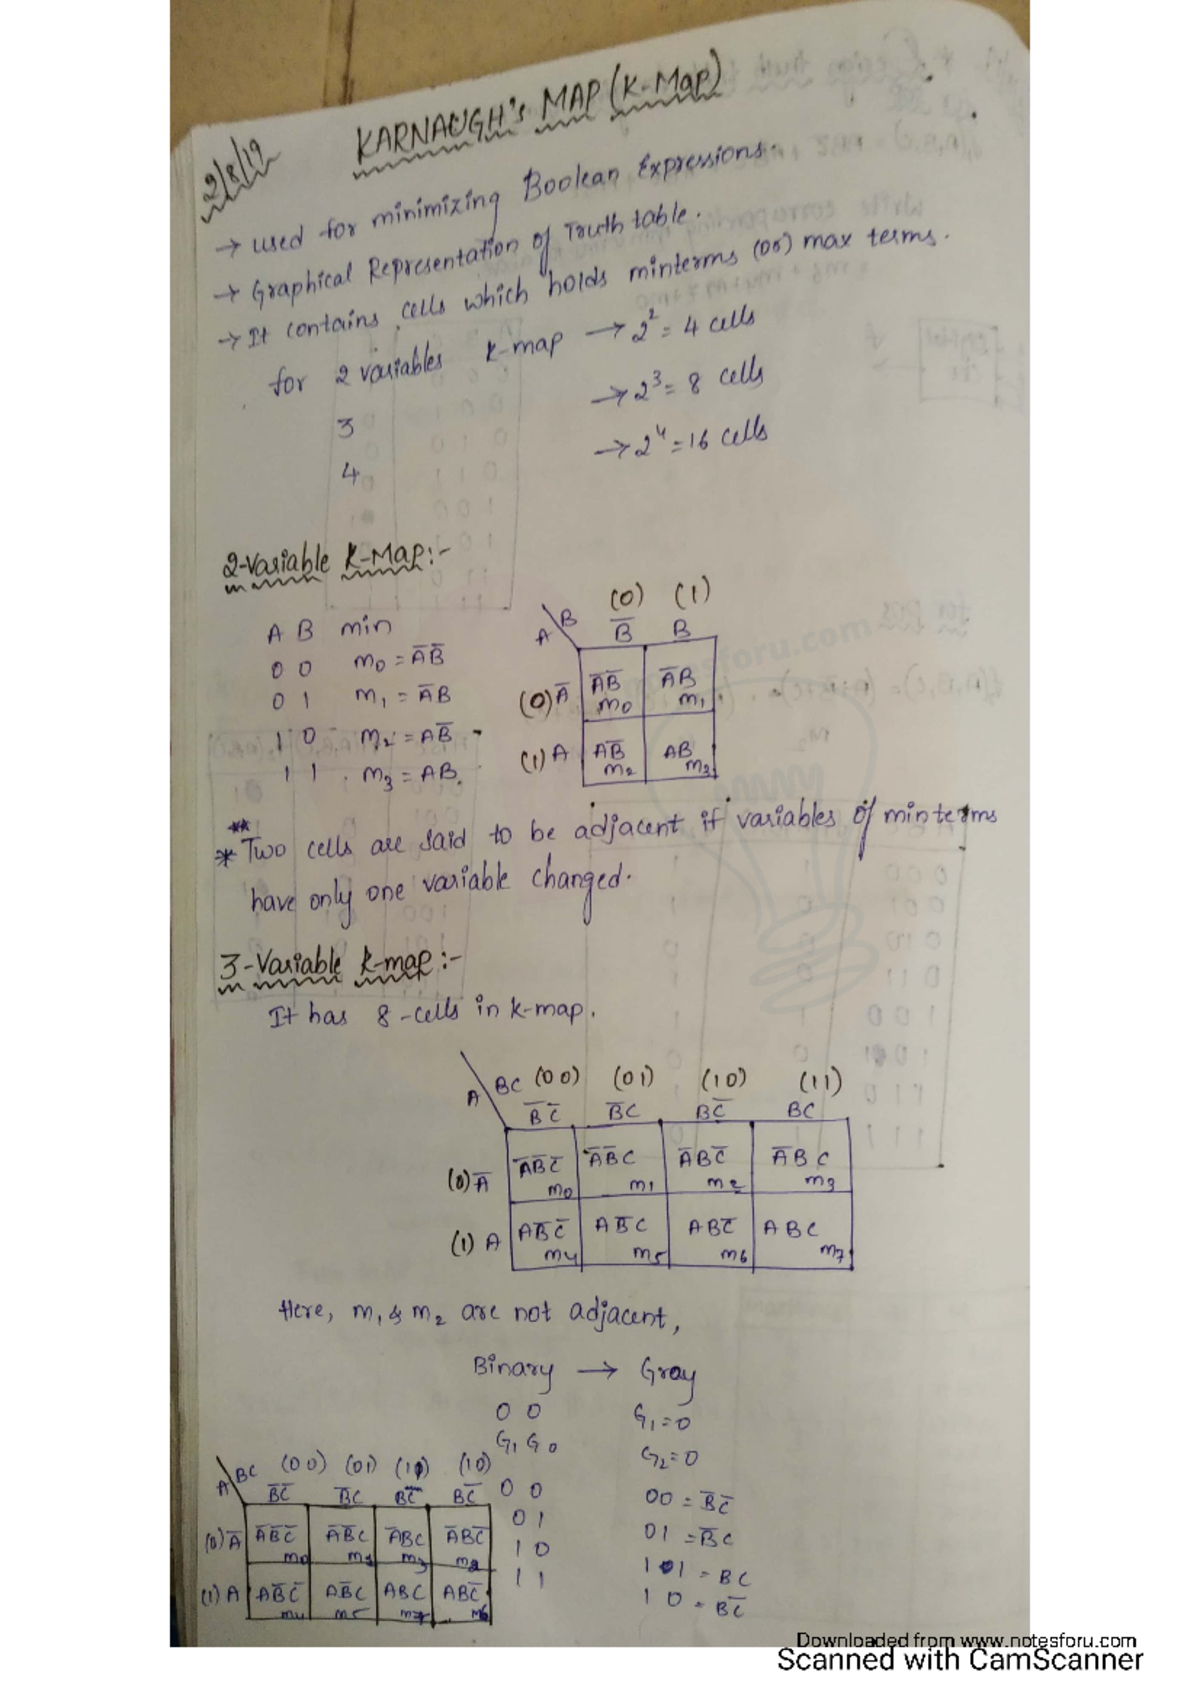 2/8/19
KARNAUGH's MAP (K-Map)
→ used for minimizing Boolean Expressions.
→ Graphical Representation of Truth table.
→ It contains cells which holds minterms (or) max terms.
for 2 variables K-map → 2² = 4 cells
3 → 2³ = 8 cells
4 → 2⁴ = 16 cells
2-Variable K-Map:-
A B min
0 0 m₀ = A̅B̅
0 1 m₁ = A̅B
1 0 m₂ = AB̅
1 1 m₃ = AB.
A B (0) B̅ (1) B
(0) A̅ A̅B̅ m₀ A̅B m₁
(1) A AB̅ m₂ AB m₃
** * Two cells are said to be adjacent if variables of minterms
have only one variable changed.
3-Variable K-map:-
It has 8-cells in k-map.
A BC (00) (01) (10) (11)
B̅C̅ B̅C BC̅ BC
(0) A̅ A̅B̅C̅ m₀ A̅B̅C m₁ A̅BC̅ m₂ A̅BC m₃
(1) A AB̅C̅ m₄ AB̅C m₅ ABC̅ m₆ ABC m₇
Here, m₁ & m₂ are not adjacent,
Binary → Gray
0 0 G₁=0
G₁ G₀ G₂=0
0 0 00 = B̅C̅
0 1 01 = B̅C
1 0 11 = BC
1 1 10 = BC̅
A BC (00) (01) (11) (10)
B̅C̅ B̅C BC BC̅
(0) A̅ A̅B̅C̅ m₀ A̅B̅C m₁ A̅BC m₃ A̅BC̅ m₂
(1) A AB̅C̅ m₄ AB̅C m₅ ABC m₇ ABC̅ m₆
Downloaded from www.notesforu.com
Scanned with CamScanner